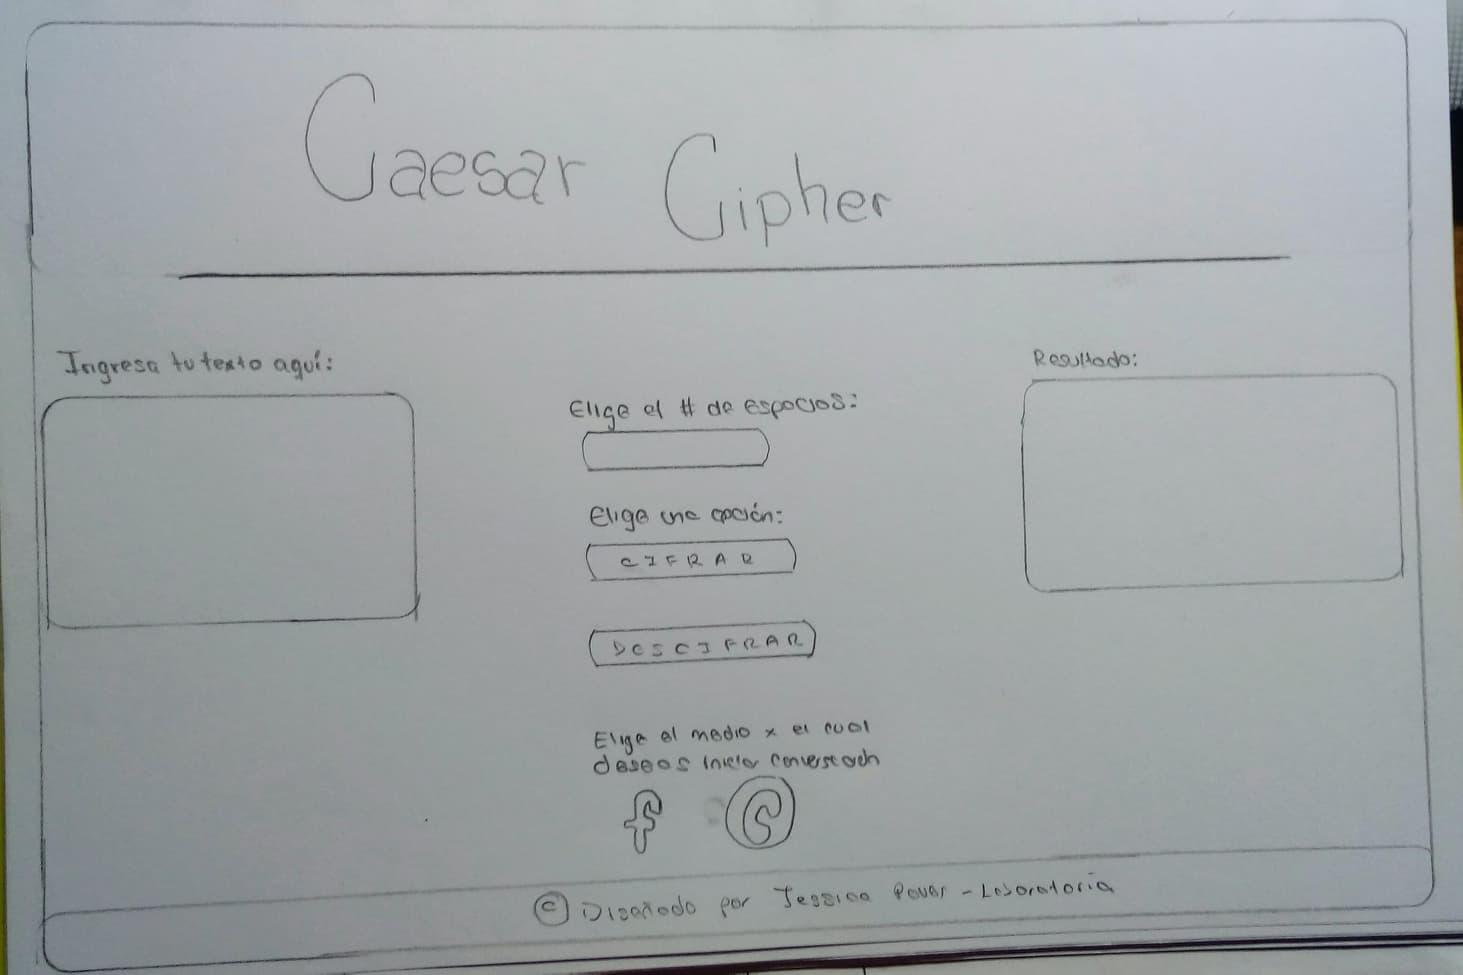 Caesar Cipher
Ingresa tu texto aquí:
Elige el # de espacios:
Elige una opción:
CIFRAR
DESCIFRAR
Elige el medio x el cual
deseas iniciar conversación
Resultado:
© Diseñado por Jessica - Laboratoria